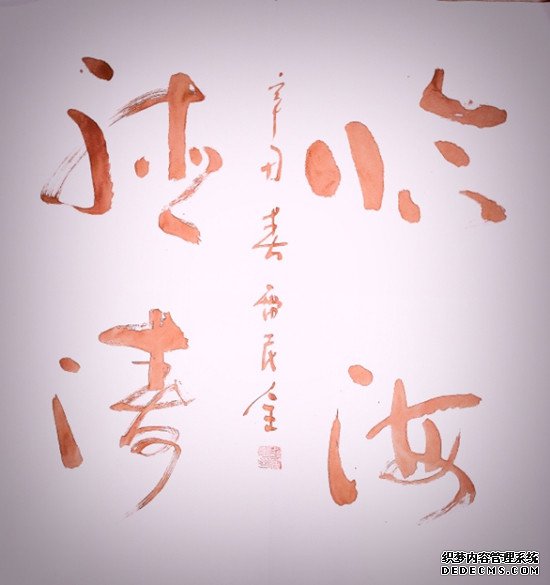 临海
听涛
辛丑春雷民全
织梦内容管理系统
DEDECMS.COM